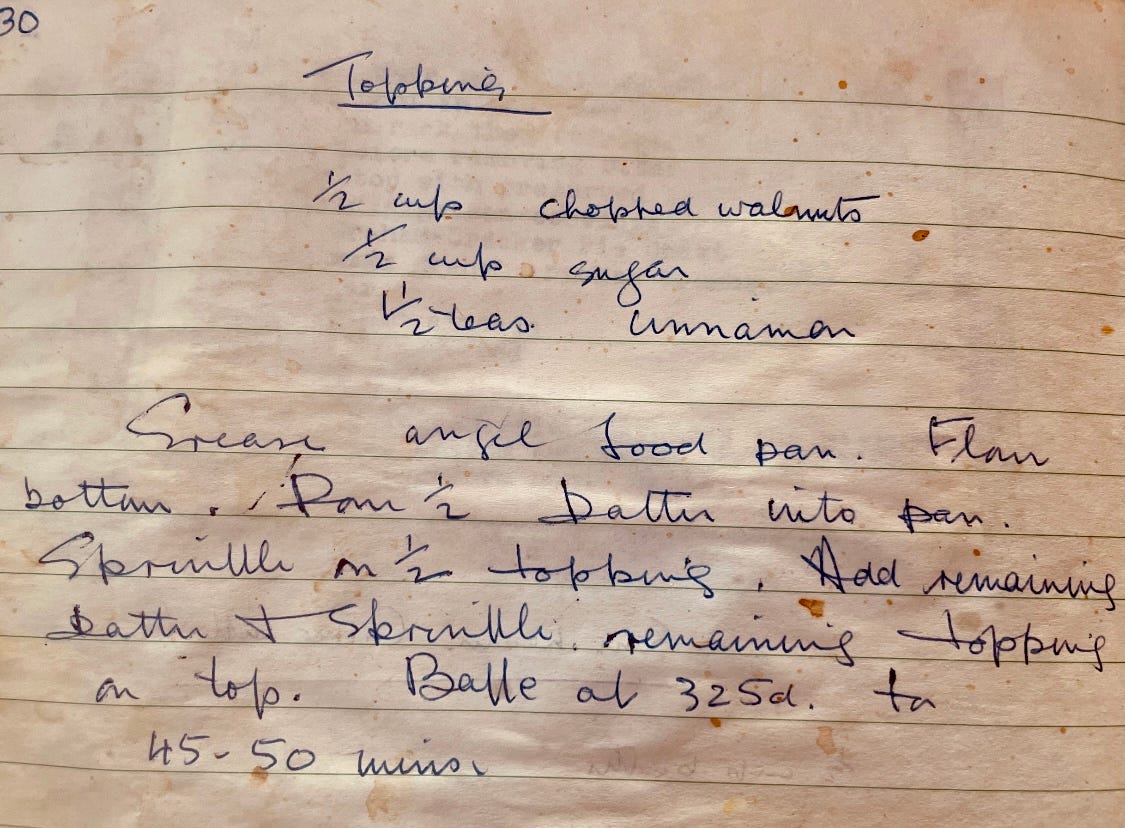 30
Topping
1/2 cup chopped walnuts
1/2 cup sugar
1 1/2 teas. cinnamon
Grease angel food pan. Flour
bottom. Pour 1/2 batter into pan.
Sprinkle on 1/2 topping. Add remaining
batter + Sprinkle remaining topping
on top. Bake at 325d. for
45-50 mins.